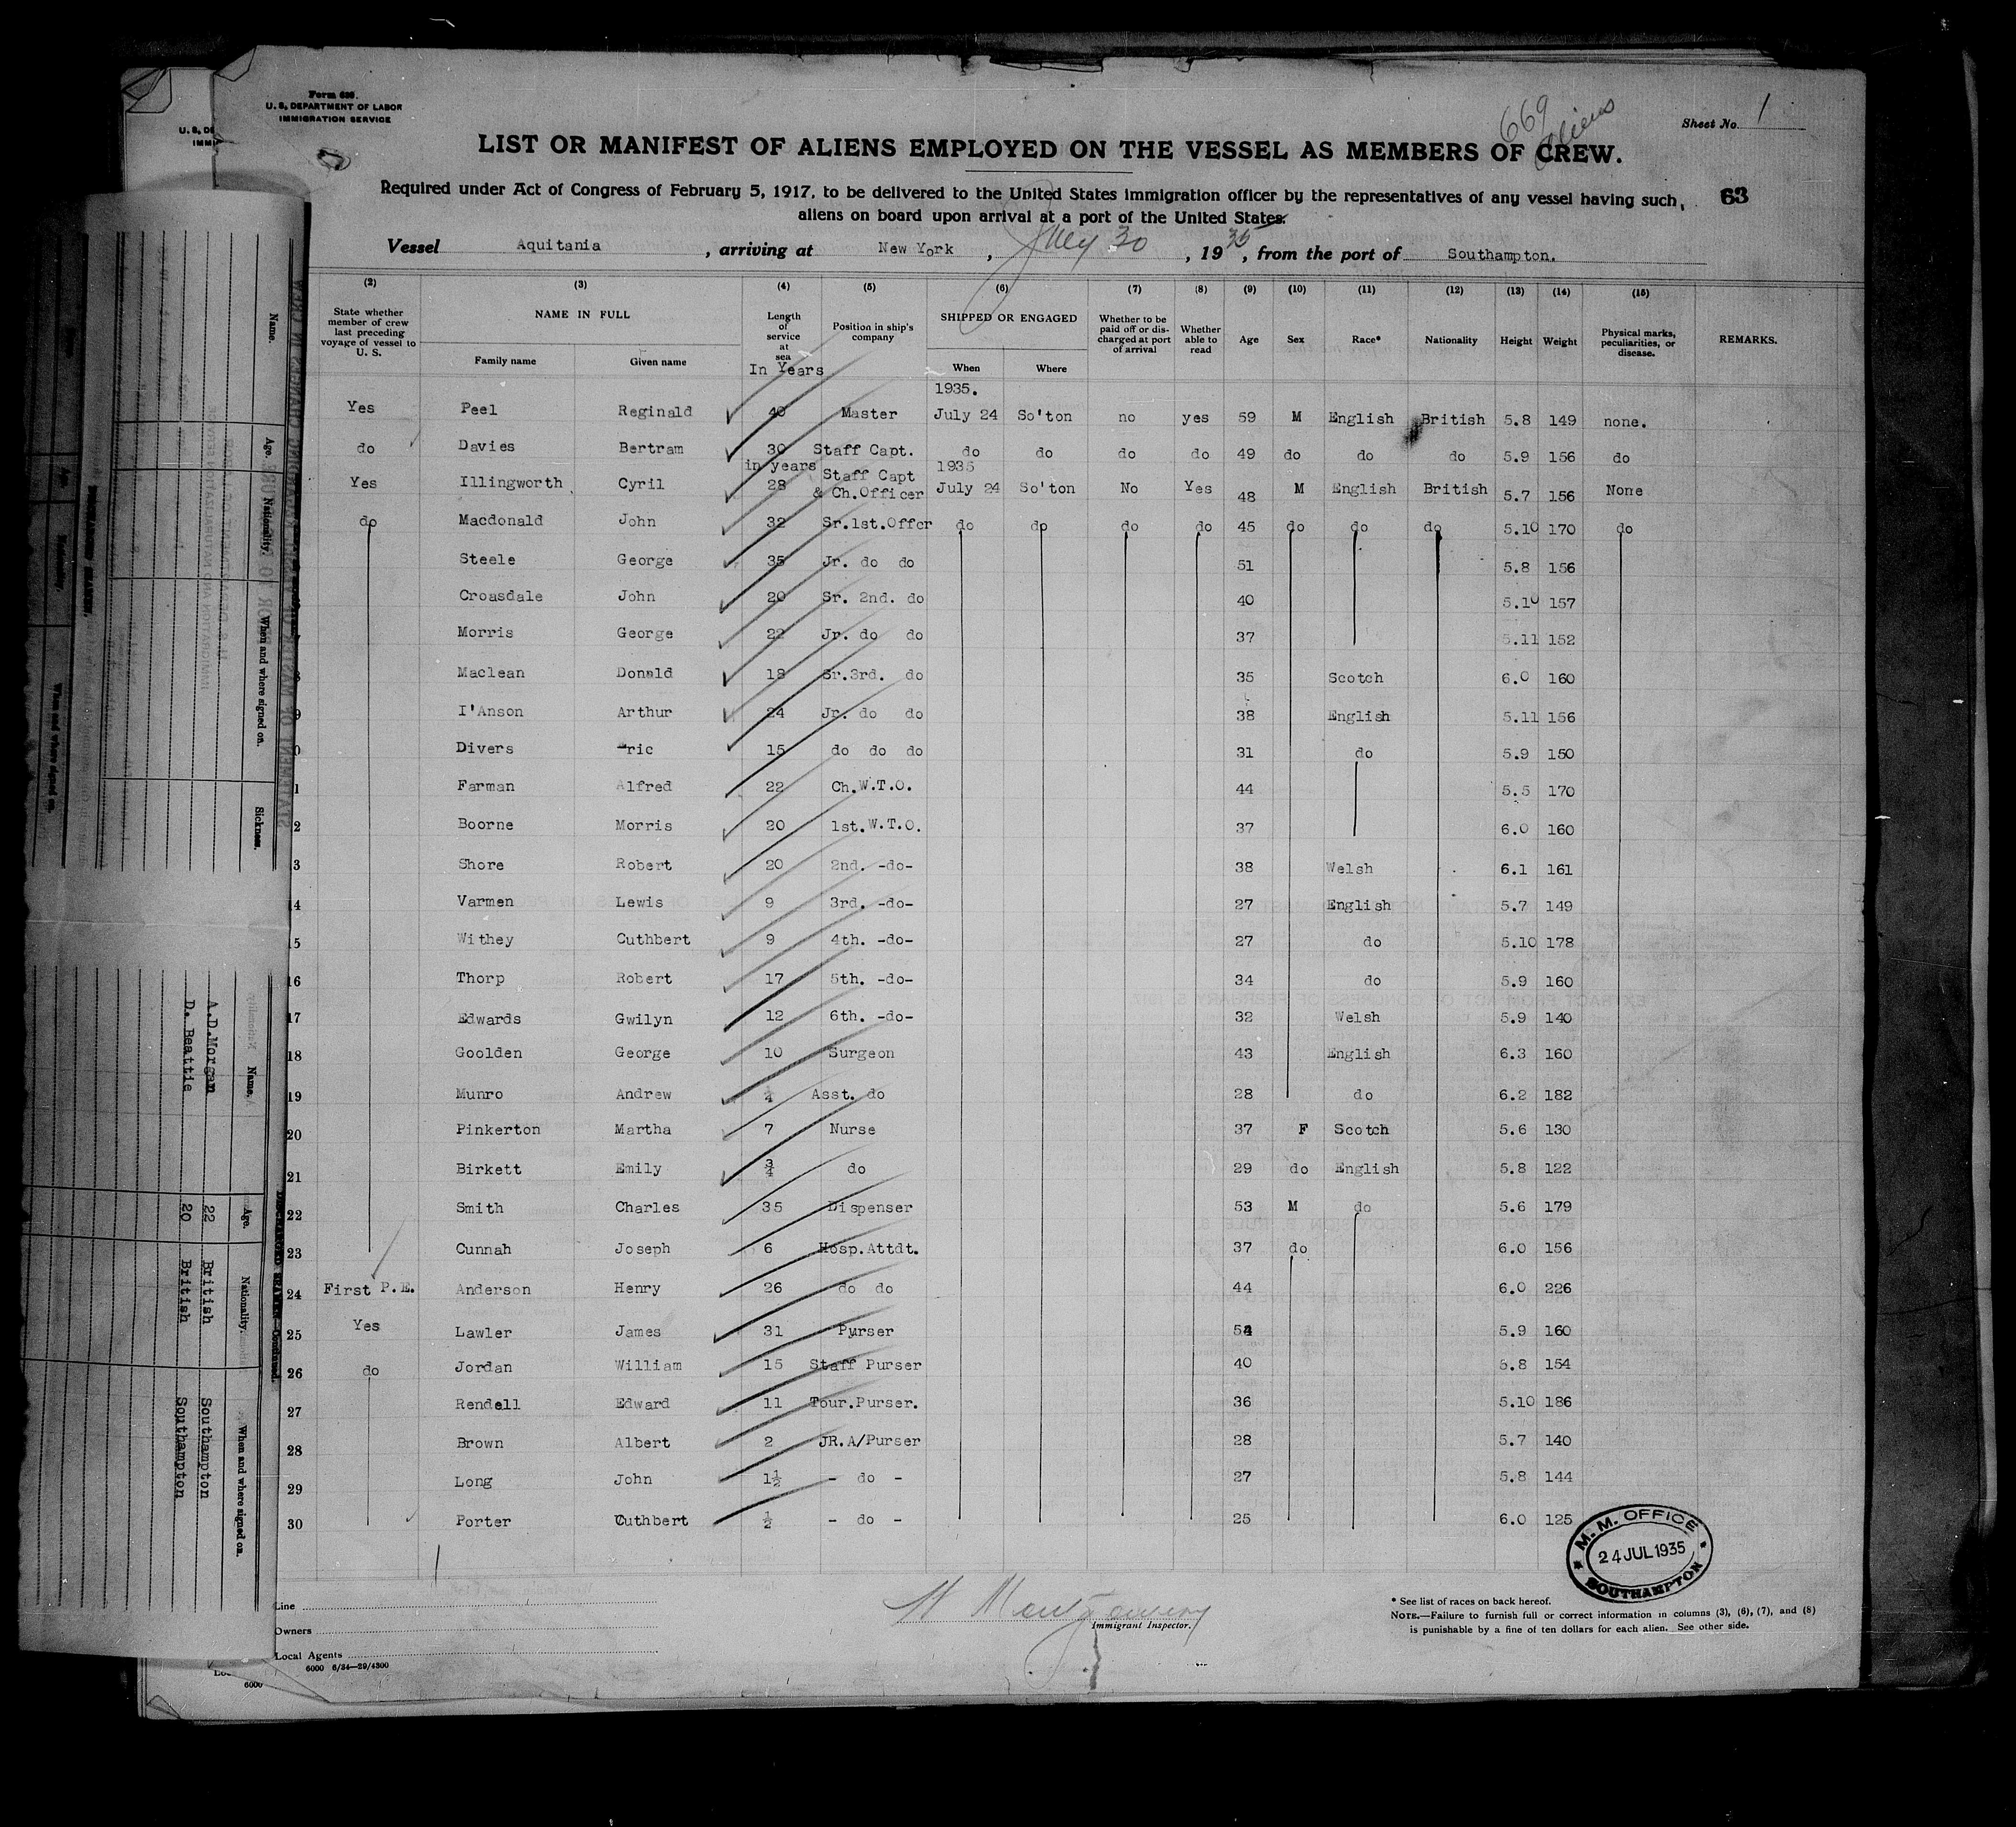 Form 686.
U. S. DEPARTMENT OF LABOR
IMMIGRATION SERVICE
669 Aliens
Sheet No. 1
LIST OR MANIFEST OF ALIENS EMPLOYED ON THE VESSEL AS MEMBERS OF CREW.
Required under Act of Congress of February 5, 1917, to be delivered to the United States immigration officer by the representatives of any vessel having such
aliens on board upon arrival at a port of the United States.
63
Vessel Aquitania, arriving at New York, July 30, 1935, from the port of Southampton.
(2) (3) (4) (5) (6) (7) (8) (9) (10) (11) (12) (13) (14) (15)
State whether member of crew last preceding voyage of vessel to U. S. NAME IN FULL Family name Given name Length of service at sea In Years Position in ship's company SHIPPED OR ENGAGED When Where Whether to be paid off or discharged at port of arrival Whether able to read Age Sex Race* Nationality Height Weight Physical marks, peculiarities, or disease. REMARKS.
1935.
Yes Peel Reginald 40 Master July 24 So'ton no yes 59 M English British 5.8 149 none.
do Davies Bertram 30 Staff Capt. do do do do 49 do do do 5.9 156 do
in years 1935
Yes Illingworth Cyril 28 Staff Capt & Ch.Officer July 24 So'ton No Yes 48 M English British 5.7 156 None
do Macdonald John 32 Sr.1st.Offcr do do do do 45 do do do 5.10 170 do
Steele George 35 Jr. do do 51 5.8 156
Croasdale John 20 Sr. 2nd. do 40 5.10 157
Morris George 22 Jr. do do 37 5.11 152
8 Maclean Donald 18 Sr.3rd. do 35 Scotch 6.0 160
9 I'Anson Arthur 24 Jr. do do 38 English 5.11 156
0 Divers ric 15 do do do 31 do 5.9 150
1 Farman Alfred 22 Ch.W.T.O. 44 5.5 170
2 Boorne Morris 20 1st.W.T.O. 37 6.0 160
3 Shore Robert 20 2nd. -do- 38 Welsh 6.1 161
4 Varmen Lewis 9 3rd. -do- 27 English 5.7 149
15 Withey Cuthbert 9 4th. -do- 27 do 5.10 178
16 Thorp Robert 17 5th. -do- 34 do 5.9 160
17 Edwards Gwilyn 12 6th. -do- 32 Welsh 5.9 140
18 Goolden George 10 Surgeon 43 English 6.3 160
19 Munro Andrew ¼ Asst. do 28 do 6.2 182
20 Pinkerton Martha 7 Nurse 37 F Scotch 5.6 130
21 Birkett Emily ¾ do 29 do English 5.8 122
22 Smith Charles 35 Dispenser 53 M do 5.6 179
23 Cunnah Joseph 6 Hosp.Attdt. 37 do 6.0 156
24 First P.E. Anderson Henry 26 do do 44 6.0 226
25 Yes Lawler James 31 Purser 54 5.9 160
26 do Jordan William 15 Staff Purser 40 5.8 154
27 Rendell Edward 11 Tour.Purser. 36 5.10 186
28 Brown Albert 2 JR.A/Purser 28 5.7 140
29 Long John 1½ - do - 27 5.8 144
30 Porter Cuthbert ½ - do - 25 6.0 125
M. M. OFFICE
24 JUL 1935
SOUTHAMPTON
Line
Owners
Local Agents
6000 6/34—29/4300
H Montgomery
Immigrant Inspector.
* See list of races on back hereof.
NOTE.—Failure to furnish full or correct information in columns (3), (6), (7), and (8)
is punishable by a fine of ten dollars for each alien. See other side.
6000
Name. Age. Nationality. When and where signed on. Sickness.
Name. Age. Nationality. When and where signed on.
A.D.Morgan 22 British Southampton
D. Beattie 20 British Southampton